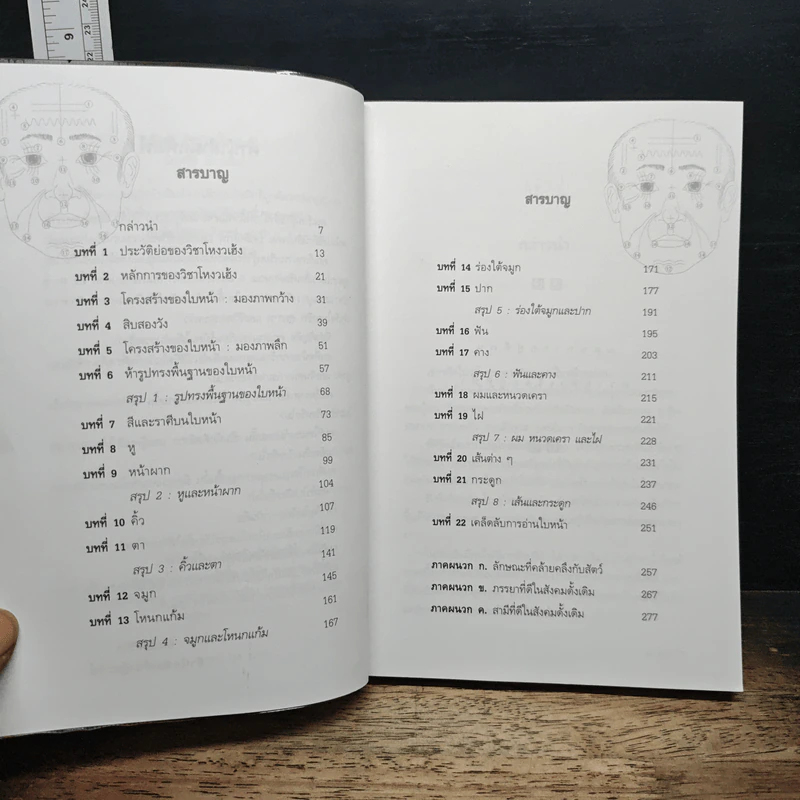 สารบาญ
กล่าวนำ 7
บทที่ 1 ประวัติย่อของวิชาโหงวเฮ้ง 13
บทที่ 2 หลักการของวิชาโหงวเฮ้ง 21
บทที่ 3 โครงสร้างของใบหน้า : มองภาพกว้าง 31
บทที่ 4 สิบสองวัง 39
บทที่ 5 โครงสร้างของใบหน้า : มองภาพลึก 51
บทที่ 6 ห้ารูปทรงพื้นฐานของใบหน้า 57
สรุป 1 : รูปทรงพื้นฐานของใบหน้า 68
บทที่ 7 สีและราศีบนใบหน้า 73
บทที่ 8 หู 85
บทที่ 9 หน้าผาก 99
สรุป 2 : หูและหน้าผาก 104
บทที่ 10 คิ้ว 107
บทที่ 11 ตา 119
สรุป 3 : คิ้วและตา 141
บทที่ 12 จมูก 145
บทที่ 13 โหนกแก้ม 161
สรุป 4 : จมูกและโหนกแก้ม 167
สารบาญ
บทที่ 14 ร่องใต้จมูก 171
บทที่ 15 ปาก 177
สรุป 5 : ร่องใต้จมูกและปาก 191
บทที่ 16 ฟัน 195
บทที่ 17 คาง 203
สรุป 6 : ฟันและคาง 211
บทที่ 18 ผมและหนวดเครา 215
บทที่ 19 ไฝ 221
สรุป 7 : ผม หนวดเครา และไฝ 228
บทที่ 20 เส้นต่าง ๆ 231
บทที่ 21 กระดูก 237
สรุป 8 : เส้นและกระดูก 246
บทที่ 22 เคล็ดลับการอ่านใบหน้า 251
ภาคผนวก ก. ลักษณะที่คล้ายคลึงกับสัตว์ 257
ภาคผนวก ข. ภรรยาที่ดีในสังคมดั้งเดิม 267
ภาคผนวก ค. สามีที่ดีในสังคมดั้งเดิม 277